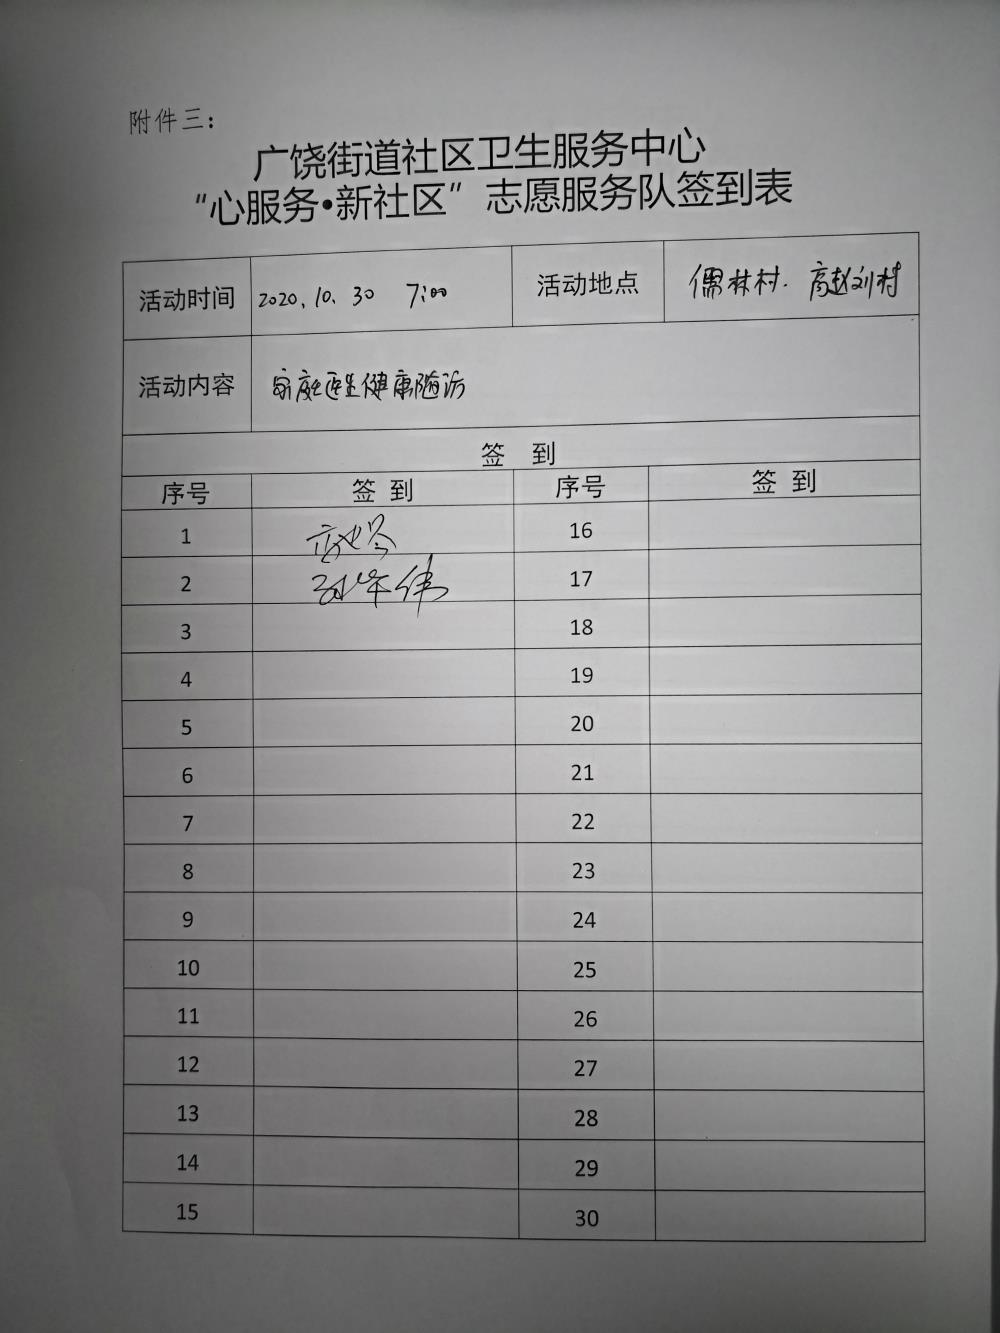 附件三：
广饶街道社区卫生服务中心
“心服务•新社区”志愿服务队签到表
活动时间 2020.10.30 7:00 活动地点 儒林村. 高赵刘村
活动内容 家庭医生健康随访
签 到
序号 签 到 序号 签 到
1 16
2 伟 17
3 18
4 19
5 20
6 21
7 22
8 23
9 24
10 25
11 26
12 27
13 28
14 29
15 30